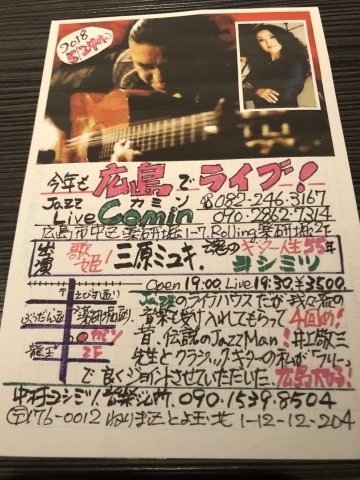 2018
今年も広島でライブ!
Jazz カミン ☎082-246-3167
Live Comin 090-2862-7314
広島市中区薬研堀1-7, Rolling薬研堀2F
出演 歌姫! 三原ミユキ. 魂のギター人生55年 ヨシミツ
Open 19:00 Live 19:30 ¥3500
Jazzのライブハウスだが我々の
音楽も受け入れてもらって4回め!
昔、伝説のJazzMan! 井上敬三
先生とクラシックギターの私が「フリー」
で良くジョイントさせていただいた
えびす通り
薬研堀通り
カミン
2F
中村ヨシミツ音楽 090.1539.8504
〒176-0012 ねりま区とよ玉北 1-12-12-204